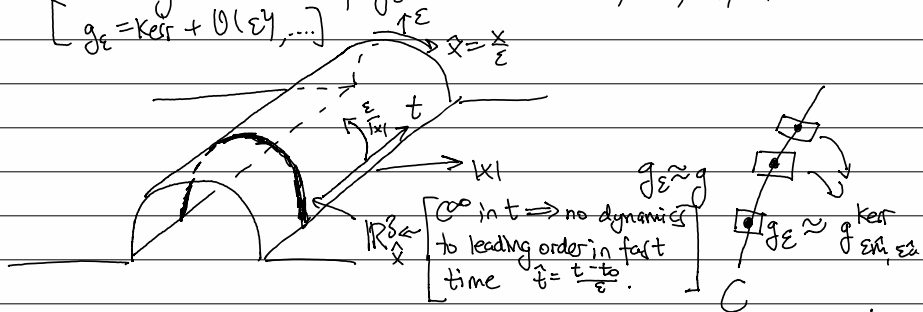 [ g_ε = Kerr + O(ε^4, ....]
↑ε
x̂ = x/ε
t
ε/|x|
→ |x|
g_ε ≈ g
ℝ³_x̂ ← [ C^∞ in t ⟹ no dynamics
to leading order in fast
time t̂ = (t-t₀)/ε. ]
g_ε ≈ g^Kerr_{εm̂, εâ}
C